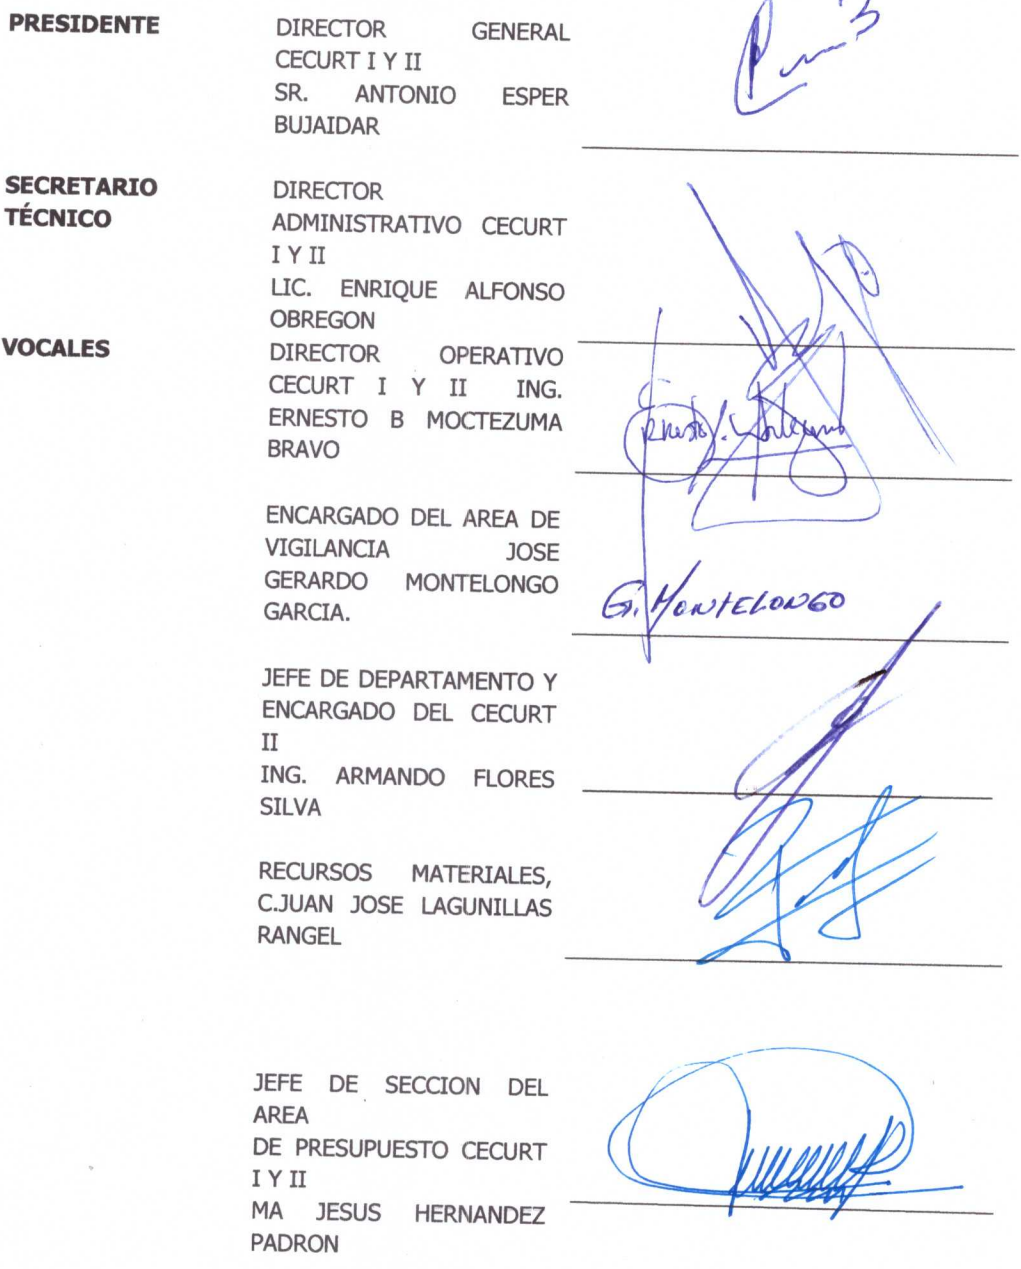 PRESIDENTE
DIRECTOR GENERAL
CECURT I Y II
SR. ANTONIO ESPER
BUJAIDAR
SECRETARIO
TÉCNICO
DIRECTOR
ADMINISTRATIVO CECURT
I Y II
LIC. ENRIQUE ALFONSO
OBREGON
VOCALES
DIRECTOR OPERATIVO
CECURT I Y II ING.
ERNESTO B MOCTEZUMA
BRAVO
Ernesto
ENCARGADO DEL AREA DE
VIGILANCIA JOSE
GERARDO MONTELONGO
GARCIA.
G. MONTELONGO
JEFE DE DEPARTAMENTO Y
ENCARGADO DEL CECURT
II
ING. ARMANDO FLORES
SILVA
RECURSOS MATERIALES,
C.JUAN JOSE LAGUNILLAS
RANGEL
JEFE DE SECCION DEL
AREA
DE PRESUPUESTO CECURT
I Y II
MA JESUS HERNANDEZ
PADRON